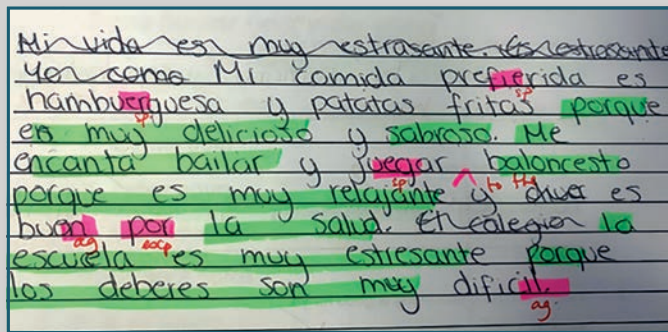 Mi vida es muy estrasante. Es estrasante
Yon como Mi comida prefierida es
hamburguesa y patatas fritas porque
sp sp
es muy delicioso y sabroso. Me
encanta bailar y juegar baloncesto
sp to the
porque es muy relajante y es
buen por la salud. la
ag
escuela es muy estresante porque
los deberes son muy dificil.
ag.